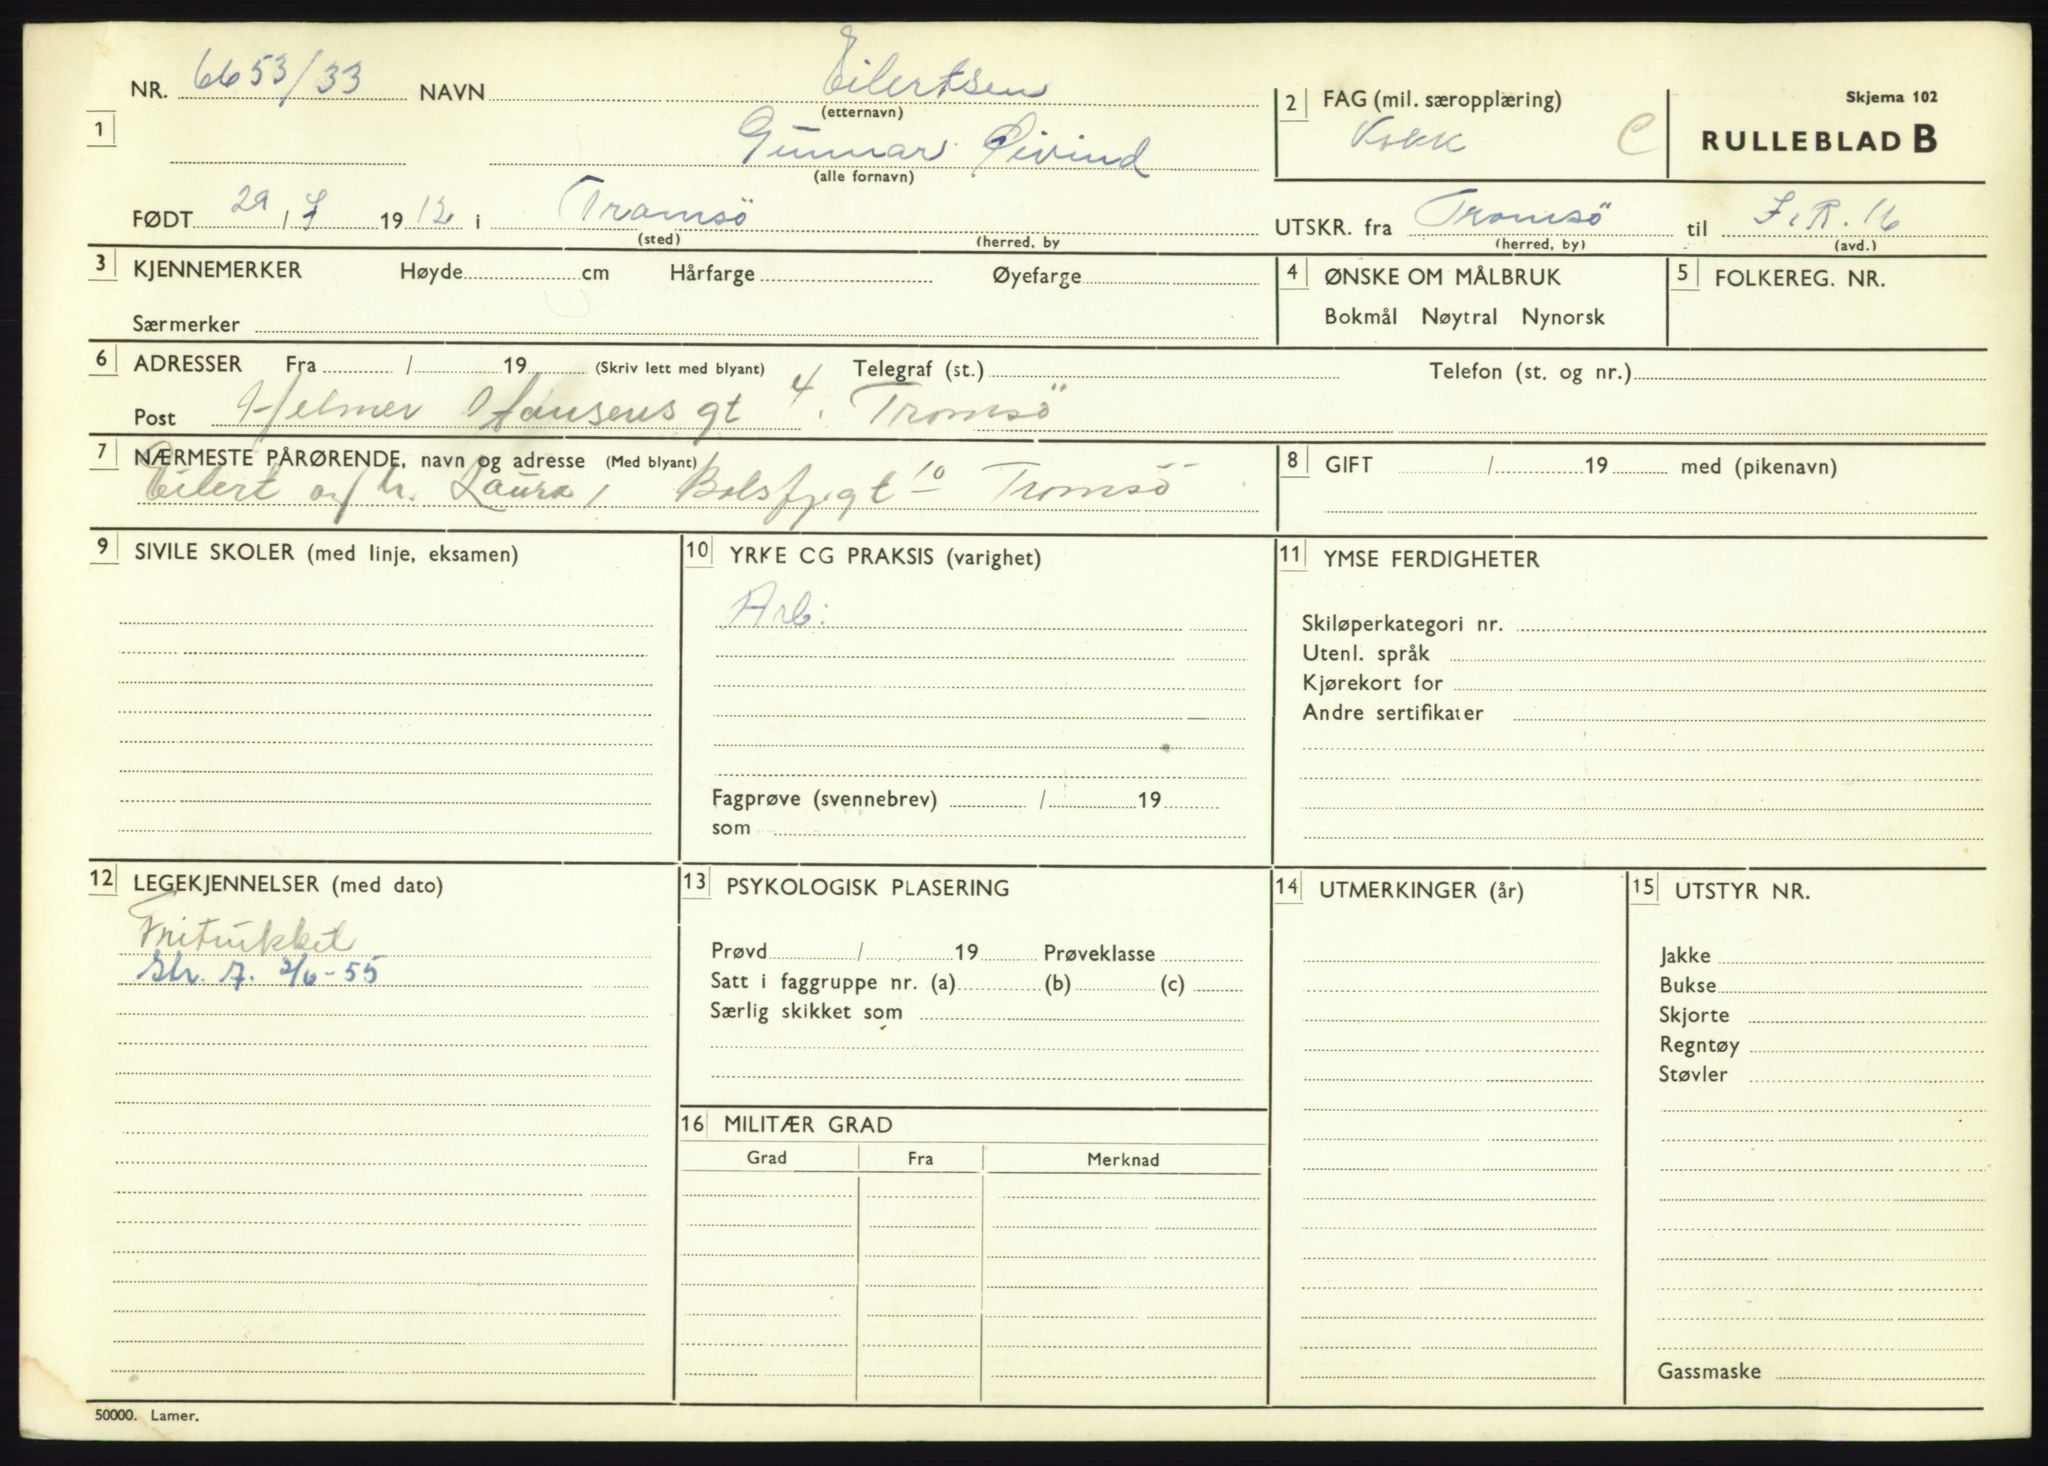 NR. 6653/33 NAVN Eilertsen
(etternavn)
1
Gunnar Øivind
(alle fornavn)
FØDT 29 / 7 1912 i Tromsö
(sted) (herred, by
2 FAG (mil. særopplæring)
Kokk C
Skjema 102
RULLEBLAD B
UTSKR. fra Tromsö til I.R. 16
(herred, by) (avd.)
3 KJENNEMERKER Høyde cm Hårfarge Øyefarge
Særmerker
4 ØNSKE OM MÅLBRUK
Bokmål Nøytral Nynorsk
5 FOLKEREG. NR.
6 ADRESSER Fra / 19 (Skriv lett med blyant) Telegraf (st.) Telefon (st. og nr.)
Post Helmer Hansens gt 4. Tromsö
7 NÆRMESTE PÅRØRENDE, navn og adresse (Med blyant)
Eilert og Laura, Balsfj.gt 10 Tromsö
8 GIFT / 19 med (pikenavn)
9 SIVILE SKOLER (med linje, eksamen)
10 YRKE CG PRAKSIS (varighet)
Arb.
Fagprøve (svennebrev) / 19
som
11 YMSE FERDIGHETER
Skiløperkategori nr.
Utenl. språk
Kjørekort for
Andre sertifikater
12 LEGEKJENNELSER (med dato)
Str. 7. 2/6-55
13 PSYKOLOGISK PLASERING
Prøvd / 19 Prøveklasse
Satt i faggruppe nr. (a) (b) (c)
Særlig skikket som
14 UTMERKINGER (år)
15 UTSTYR NR.
Jakke
Bukse
Skjorte
Regntøy
Støvler
Gassmaske
16 MILITÆR GRAD
Grad Fra Merknad
50000. Lamer.